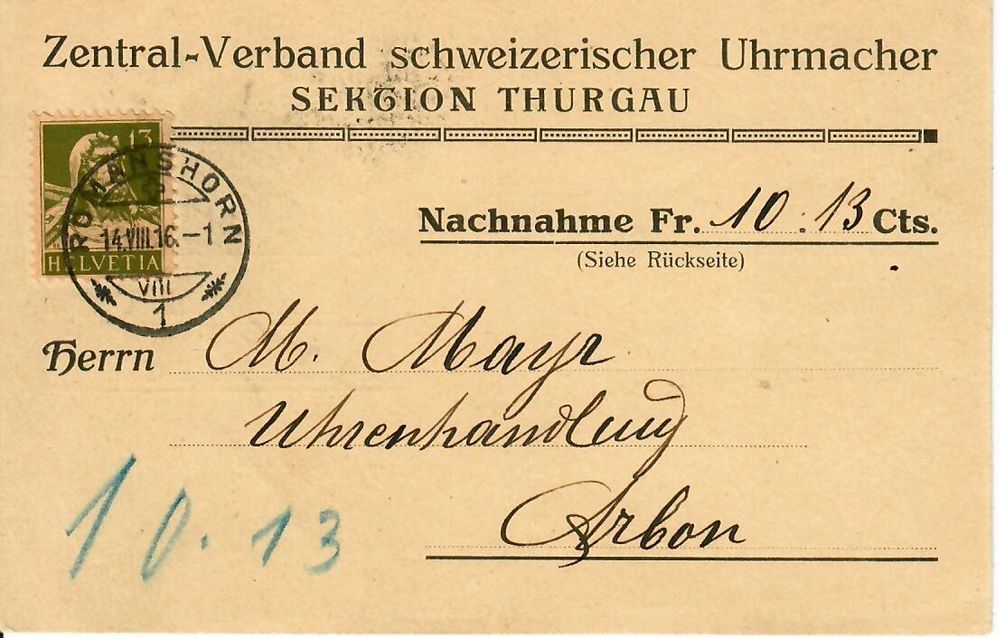 Zentral-Verband schweizerischer Uhrmacher
SEKTION THURGAU
13
HELVETIA
ROMANSHORN
14.VIII.16.-1
VIII
1
Nachnahme Fr. 10.13 Cts.
(Siehe Rückseite)
Herrn M. Mayr
Uhrenhandlung
Arbon
10.13